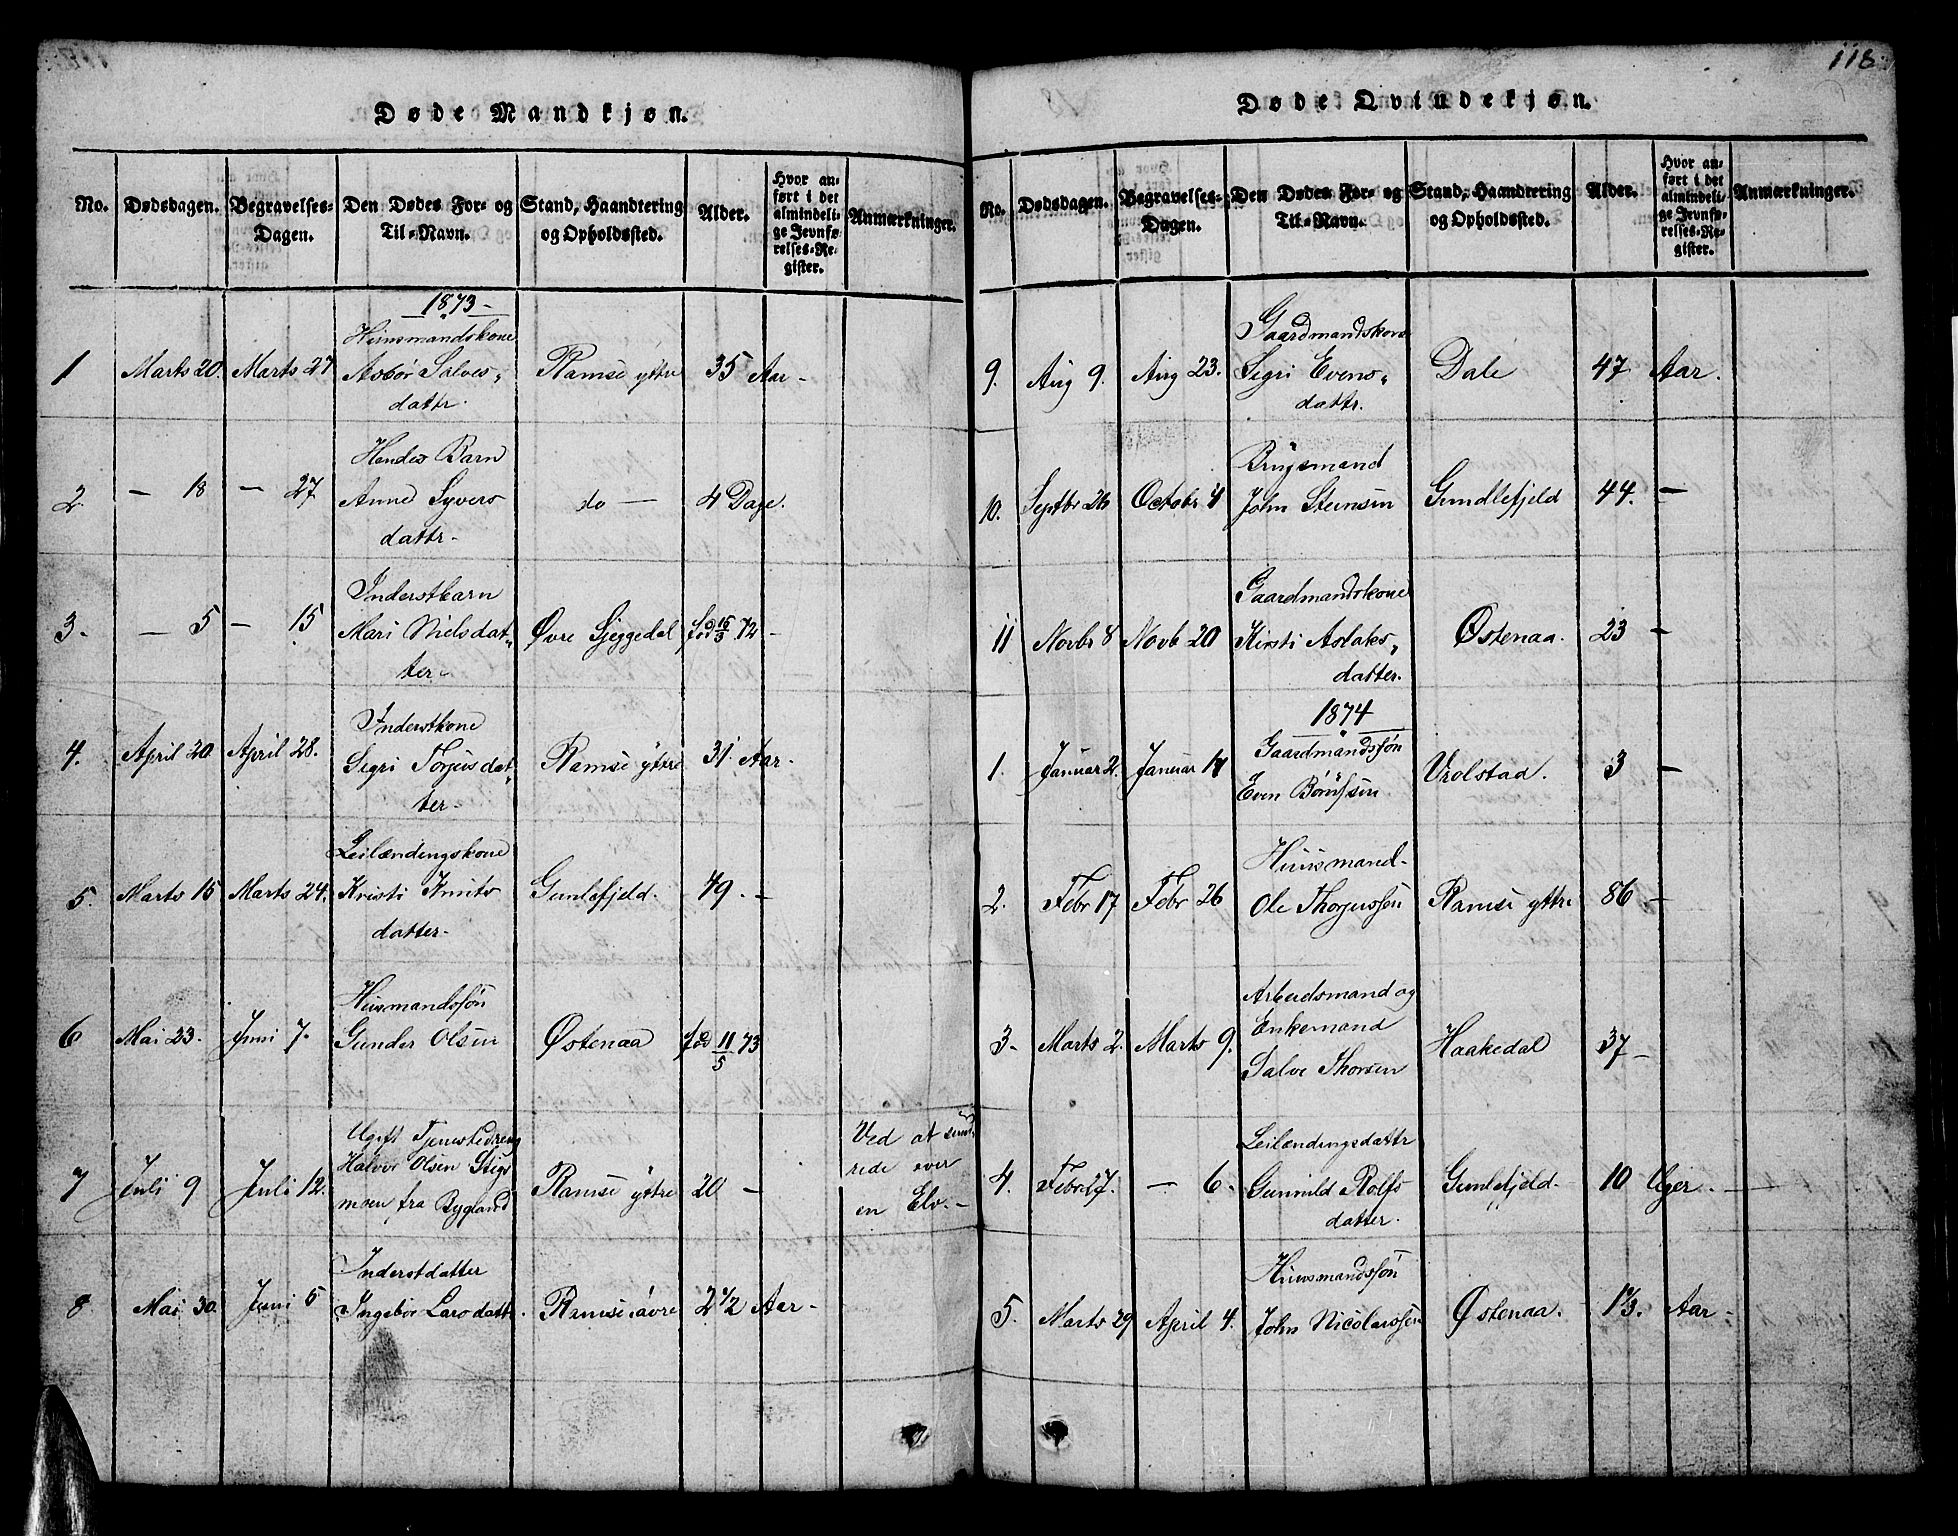 118
Døde Mandkjøn.
No. Dødsdagen. Begravelses-Dagen. Den Dødes For- og Til-Navn. Stand, Haandtering og Opholdssted. Alder. Hvor anført i det almindelige Jevnførelses-Register. Anmærkninger.
1873-
Huusmandskone
1 Marts 20. Marts 27 Asbør Salves„ Ramse yttre 35 Aar -
dattr.
Hendes Barn
2. — 18 — 27 Anne Syvers do — 4 Dage.
dattr-
Inderstbarn
3. — 5 — 15 Mari Nielsdat„ Øvre Sjeggedal fød 15/3 72 -
ter-
Inderstkone
4. April 20 April 28. Sigri Torjusdat„ Ramse yttre 31 Aar-
ter-
Leilændingskone
5. Marts 15 Marts 24. Kristi Knuts Gunlefjeld. 49. -
datter-
Huusmandssøn
6 Mai 23. Juni 7. Gunder Olsen Østenaa fød 11/5 73
Ugift Tjenestedreng Ved at sund„
7 Juli 9 Juli 12. Halvor Olsen Stigs Ramse yttre 20 - rede over
moen fra Bygland en Elv.-
Inderstdatter
8 Mai 30. Juni 5 Ingebør Larsdattr. Ramse øvre 2 1/2 Aar-
Døde Qvindekjøn.
No. Dødsdagen. Begravelses-Dagen. Den Dødes For- og Til-Navn. Stand, Haandtering og Opholdssted. Alder. Hvor anført i det almindelige Jevnførelses-Register. Anmærkninger.
Gaardmandskone
9. Aug 9. Aug 23. Sigri Evens„ Dale 47 Aar.
dattr.
Brugsmand
10. Septbr 26 Octobr 4 John Steensen Gundlefjeld 44. —
Gaardmandskone
11 Novbr 8 Novb 20 Kirsti Aslaks„ Østenaa. 23 —
datter.
1874
Gaardmandssøn
1. Januar 2. Januar 14 Even Børufsen Vrolstad. 3 —
Huusmand-
2. Febr 17 Febr 26 Ole Thorjussøn Ramse yttre 86 -
Arbeidsmand og
Enkemand
3. Marts 2. Marts 9. Salve Thorsen Haakedal 37 —
Leilændingsdattr
4. Febr 27. — 6. Gunnild Rolfs Gunlefjeld. 10 Uger. —
datter.
Huusmandssøn
5. Marts 29 April 4. John Nicolaissen Østenaa. 1 1/3. Aar-